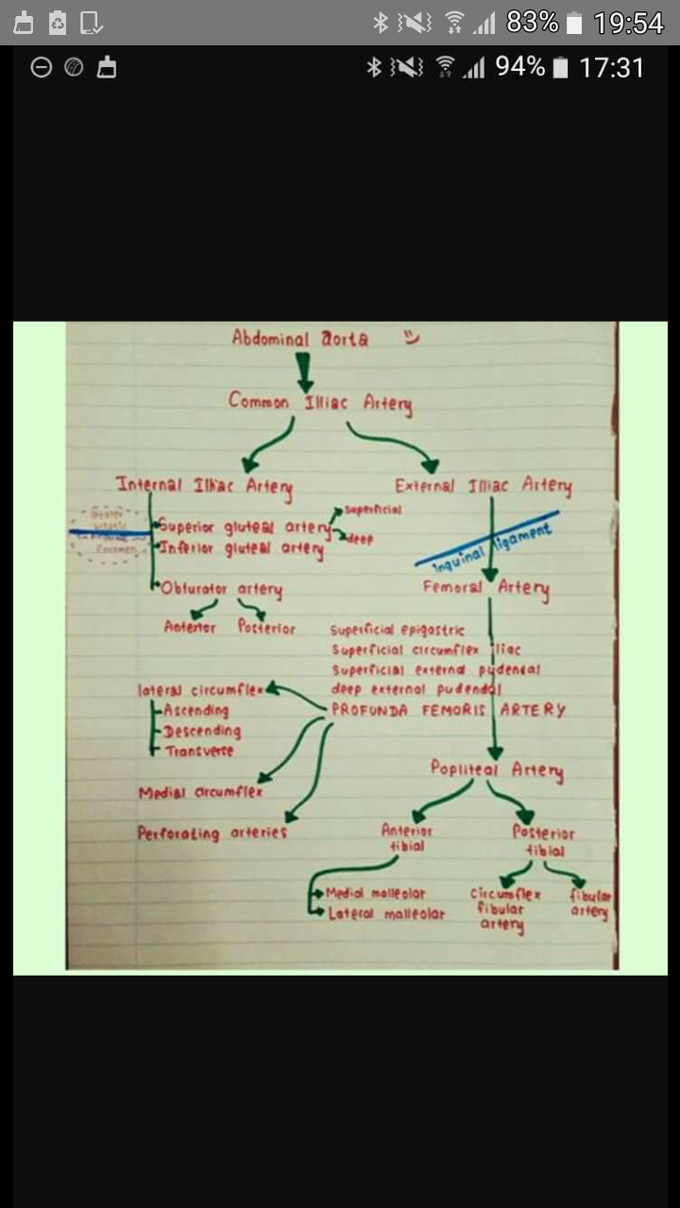 83% 19:54
94% 17:31
Abdominal aorta
Common Illiac Artery
Internal Illiac Artery
External Illiac Artery
Superior gluteal artery
superficial
deep
Inferior gluteal artery
Greater
Foramen
inguinal ligament
Obturator artery
Anterior Posterior
Femoral Artery
Superficial epigostric
Superficial circumflex iliac
Superficial external pudendal
deep external pudendal
PROFUNDA FEMORIS ARTERY
lateral circumflex
Ascending
Descending
Transverse
Medial circumflex
Perforating arteries
Popliteal Artery
Anterior
tibial
Posterior
tibial
Medial malleolar
Lateral malleolar
circumflex
fibular
artery
fibular
artery